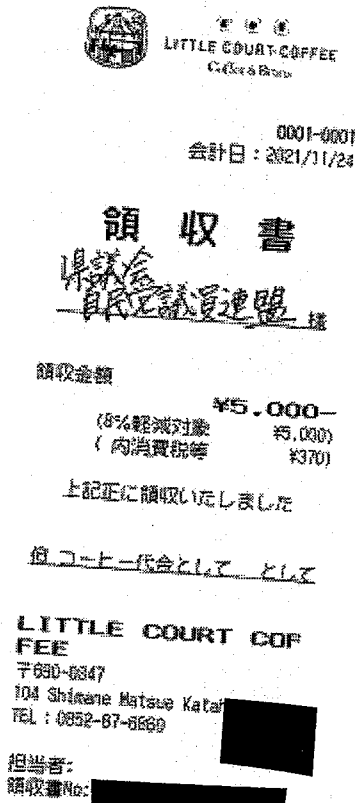 LITTLE COURT COFFEE
Coffee & Beans
0001-0001
会計日：2021/11/24
領収書
県議会
自民党議員連盟 様
領収金額
¥5,000-
(8%軽減対象 ¥5,000)
(内消費税等 ¥370)
上記正に領収いたしました
但 コーヒー代金として として
LITTLE COURT COF
FEE
〒690-0847
104 Shimane Matsue Katah
TEL：0852-67-6669
担当者:
領収書No: